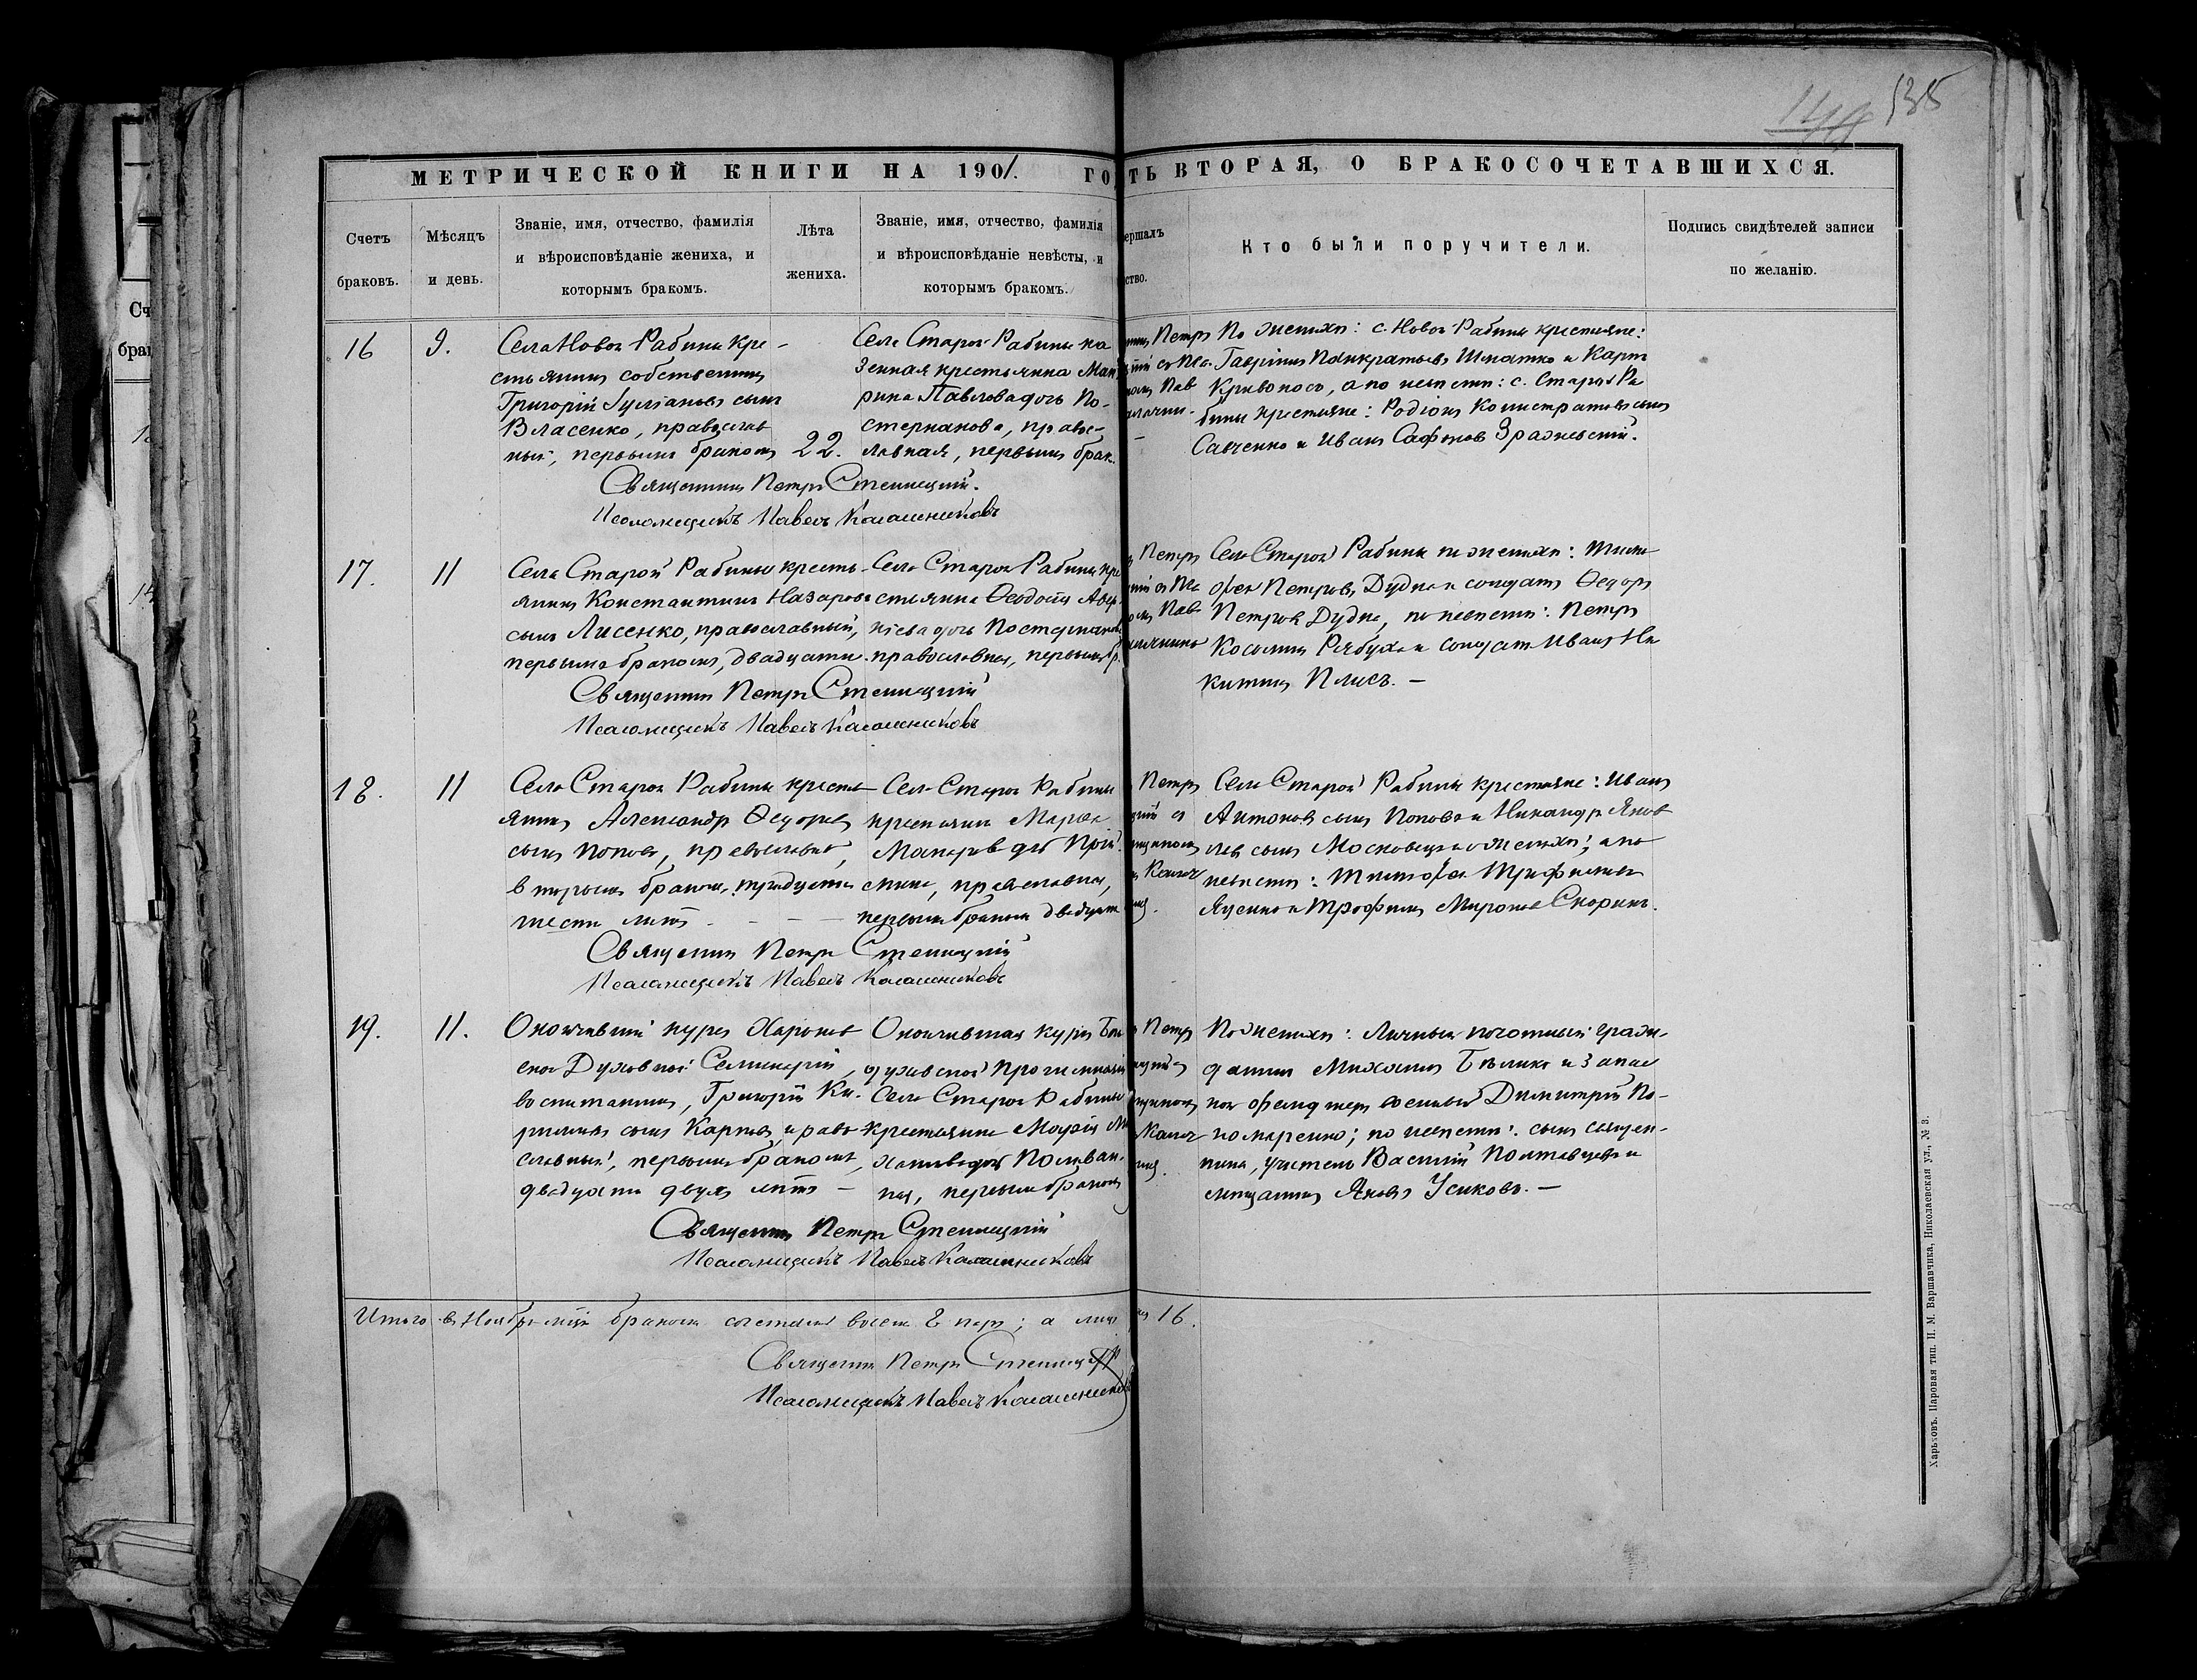 135
МЕТРИЧЕСКОЙ КНИГИ НА 1901. ГО
ТЬ ВТОРАЯ, О БРАКОСОЧЕТАВШИХСЯ.
Счетъ браковъ.
Мѣсяцъ и день.
Званіе, имя, отчество, фамилія
и вѣроисповѣданіе жениха, и
которымъ бракомъ.
Лѣта жениха.
Званіе, имя, отчество, фамилія
и вѣроисповѣданіе невѣсты, и
которымъ бракомъ.
ершалъ
ство.
Кто были поручители.
Подпись свидѣтелей записи
по желанію.
16
9.
Села Новой Рабины кре-
стьянинъ собственникъ
Григорій Іуліановъ сынъ
Власенко, православ
ный, первымъ бракомъ
22.
Села Старой Рабины ка
зенная крестьянка Мак
рина Павлова дочь По-
стернакова, право-
славная, первымъ брак.
Петръ
По женихѣ: с. Новой Рабины крестьяне:
Гавріилъ Панкратьевъ Шматко и Карпъ
Кривоносъ, а по невѣстѣ: с. Старой Ра
бины крестьяне: Родіонъ сынъ
Савченко и Иванъ Сафоновъ
Священникъ Петръ Стеллецкій.
Псаломщикъ Павелъ Калашниковъ
17.
11
Села Старой Рабины кресть-
янинъ Константинъ Назаровъ
сынъ Лисенко, православный,
первымъ бракомъ, двадцати
Села Старой Рабины кре
стьянка Ѳеодосія Авер-
кіева дочь Постернакова
православная, первымъ бр.
Петръ
Села Старой Рабины по женихѣ: Тимо
фей Петровъ Дудка и солдатъ Ѳедоръ
Петровъ Дудка, по невѣстѣ: Петръ
Косьминъ Рябуха и солдатъ Иванъ Ни
китинъ Плисъ. —
Священникъ Петръ Стеллецкій
Псаломщикъ Павелъ Калашниковъ
18.
11
Села Старой Рабины кресть
янинъ Александръ Ѳедоровъ
сынъ Поповъ, православный,
вторымъ бракомъ, тридцати
шести лѣтъ
Села Старой Рабины
крестьянка Марѳа
православная,
первымъ бракомъ двадцати
Петръ
Села Старой Рабины крестьяне: Иванъ
Антоновъ сынъ Поповъ и Никандръ Яков
левъ сынъ Московецъ по женихѣ; а по
невѣстѣ: Тимофей Трифиліевъ
Яценко и Трофимъ Мироновъ Скорикъ.
Священникъ Петръ Стеллецкій
Псаломщикъ Павелъ Калашниковъ
19.
11.
Окончившій курсъ Харьков
ской Духовной Семинаріи,
воспитанникъ, Григорій Ки-
рилловъ сынъ Карповъ, право
славный, первымъ бракомъ,
двадцати двухъ лѣтъ —
Окончившая курсъ Бого
духовской прогимназіи
Села Старой Рабины
крестьянка Марія
Поливан-
ная, первымъ бракомъ
Петръ
По женихѣ: Личный почотный граж-
данинъ Михаилъ Бѣликъ и запас
ной фельдшеръ военный Димитрій По-
номаренко; по невѣстѣ: сынъ священ-
ника, учитель Василій Полтавцевъ и
мѣщанинъ Яковъ Усиковъ. —
Священникъ Петръ Стеллецкій
Псаломщикъ Павелъ Калашниковъ
Итого въ Ноябрѣ мѣсяцѣ бракомъ сочеталось восемь 8 паръ; а лицъ 16.
Священникъ Петръ Стеллецкій
Псаломщикъ Павелъ Калашниковъ
Харьковъ. Паровая тип. И. М. Варшавчика, Николаевская ул., № 3.